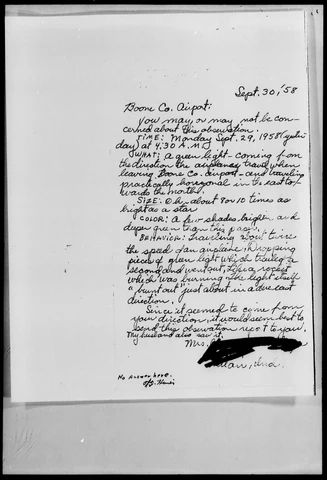 Sept. 30, '58
Boone Co. Airport:
You may, or may not be con-
cerned about this observation.
TIME: Monday Sept. 29, 1958 (yester-
day) at 9:30 A.M.
WHAT: a green light - coming from
the direction the airplanes travel when
leaving Boone Co. airport - and traveling
practically horizonal in the east to-
wards the north.
SIZE: Oh - about 8 or 10 times as
bright as a star
COLOR: A few shades brighter and
deeper green than this paper.
BEHAVIOR: Traveling about twice
the speed of an airplane & dropping
pieces of green light which trailed a
second and went out, like a rocket
which was burning. The light itself
"burnt out" just about in a due east
direction.
Since it seemed to come from
your direction, it would seem best to
send this observation report to you.
My husband also saw it.
Mrs.
Ind.
No Answer here.